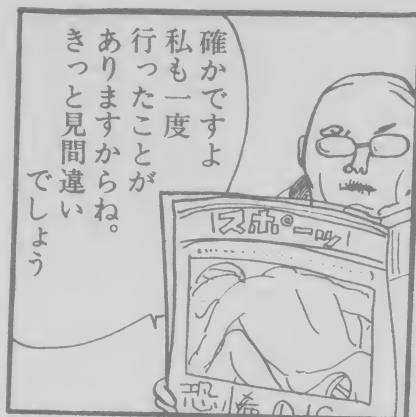 確かですよ
私も一度
行ったことが
ありますからね。
きっと見間違い
でしょう
スポーツ
恐怖の